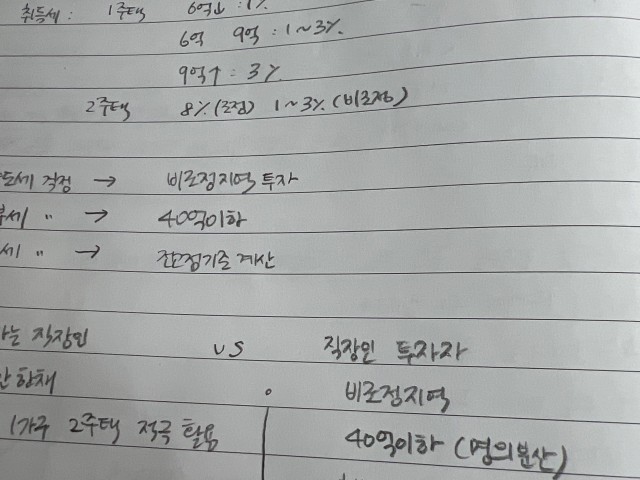 취득세 : 1주택 6억↓ : 1%
6억 9억 : 1~3%
9억↑ : 3%
2주택 8% (조정) 1~3% (비조정)
도세 걱정 → 비조정지역 투자
세 〃 → 40억이하
세 〃 → 조정기준 계산
는 직장인 vs 직장인 투자자
한채 비조정지역
1가구 2주택 적극 활용 40억이하 (명의분산)